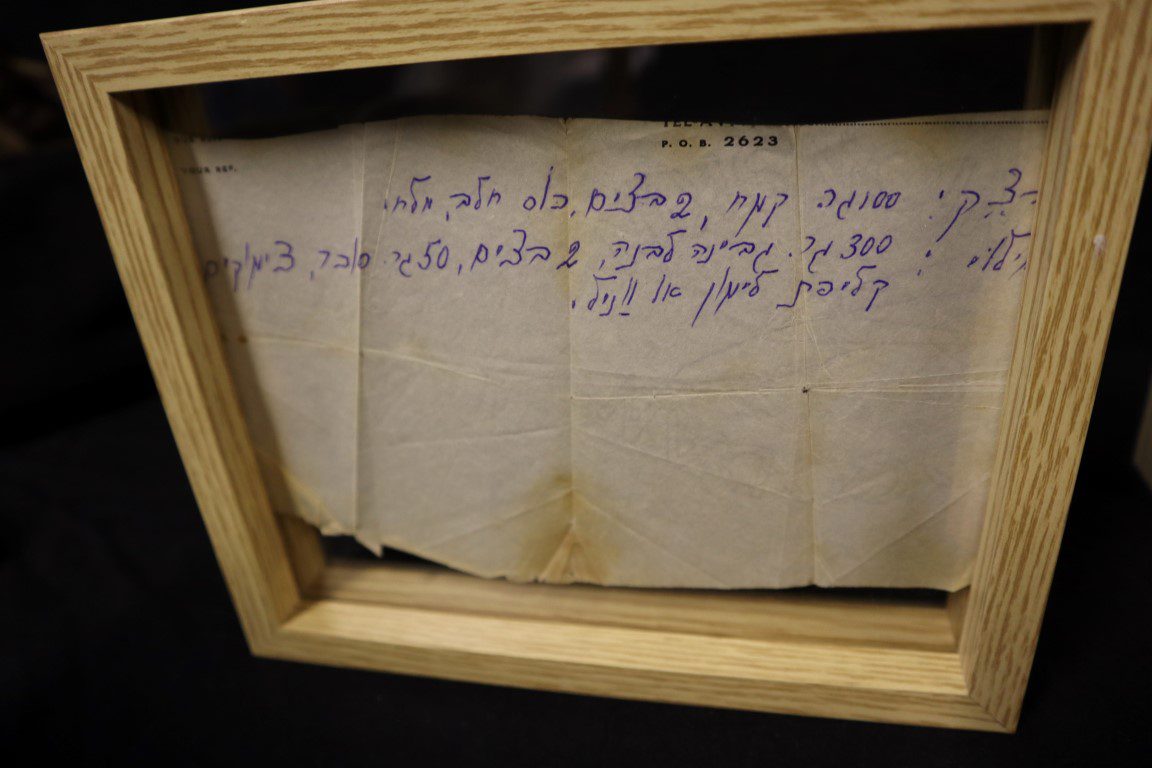 P. O. B. 2623
YOUR REF.
בצק: 100 גר קמח, 2 בצים, כוס חלב, מלח.
מילוי: 300 גר. גבינה לבנה, 2 בצים, 50 גר. סוכר, צימוקים
קליפת לימון או וניל.